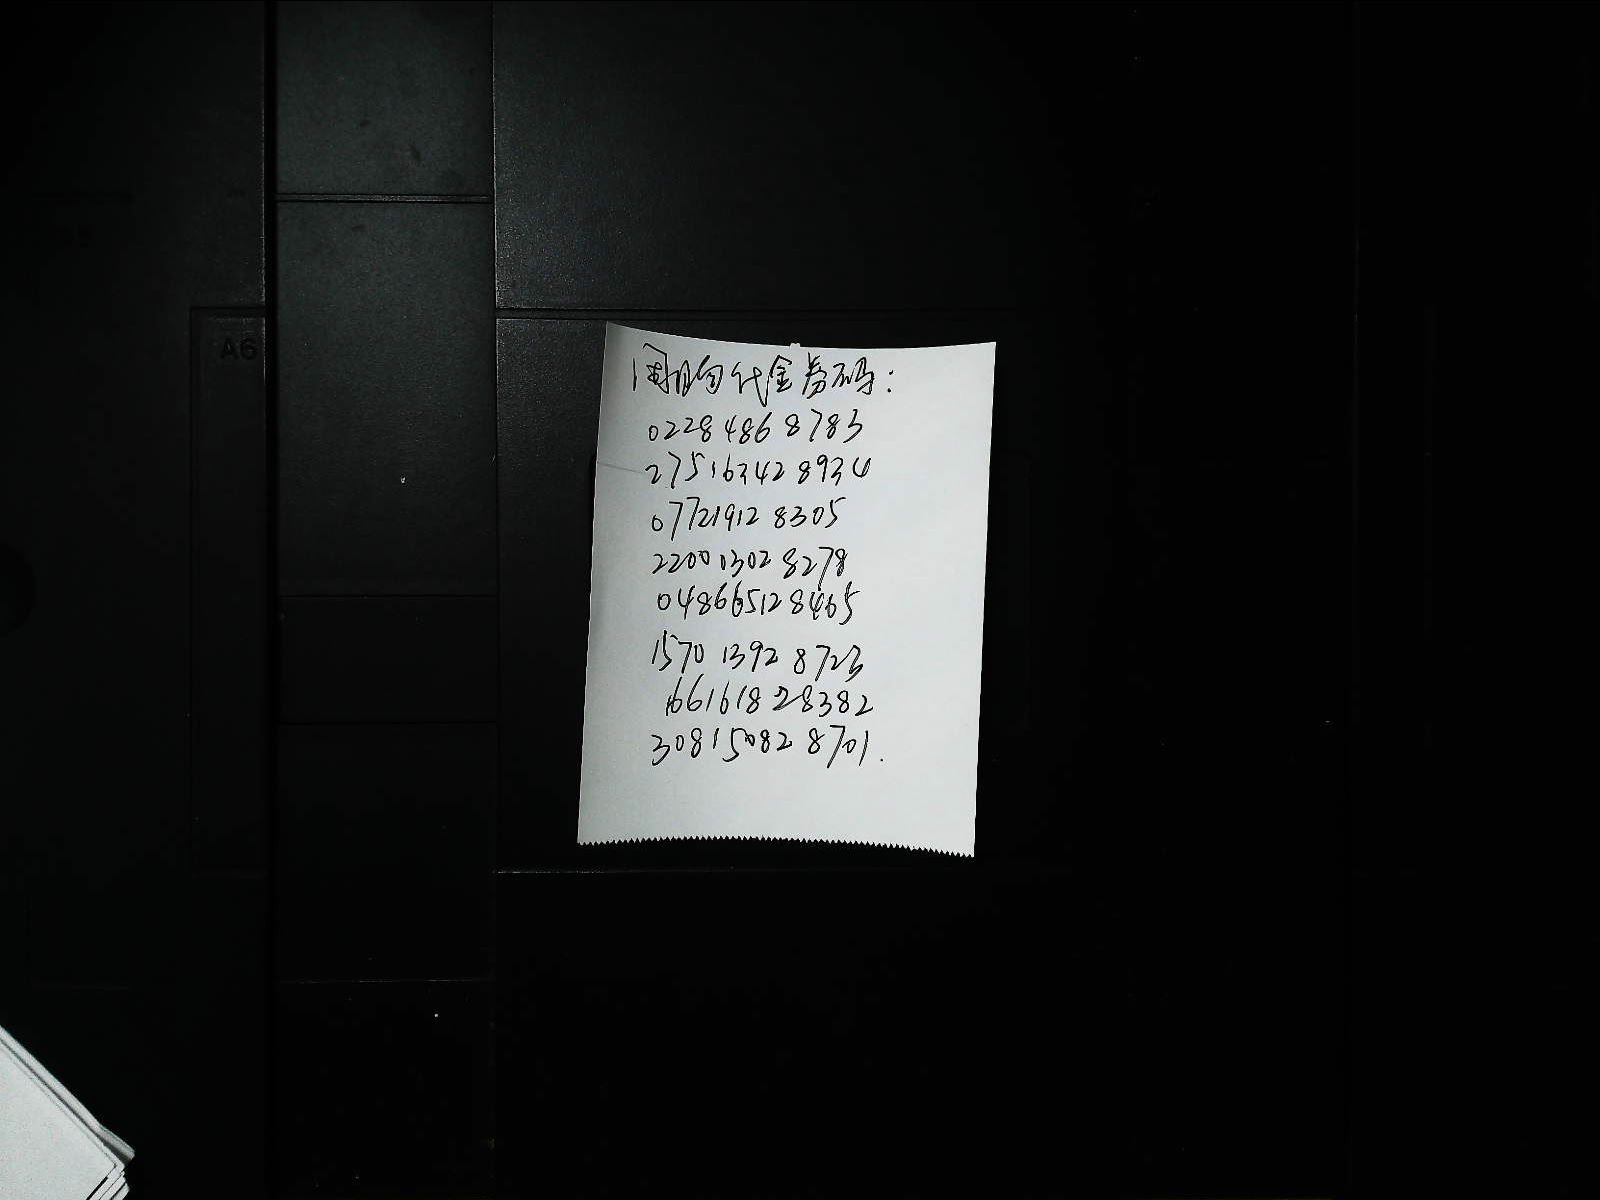 A6
团购代金券码:
0228 486 8783
275163428934
07721912 8305
2200 0302 8278
048665128465
1570 1392 8723
661618 28382
308150828701.